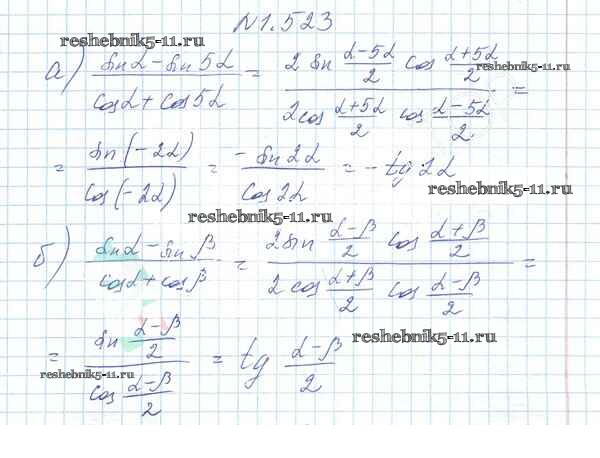 №1.523
reshebnik5-11.ru
а) (sin α − sin 5α)/(cos α + cos 5α) = (2 sin (α−5α)/2 cos (α+5α)/2)/(2 cos (α+5α)/2 cos (α−5α)/2) =
reshebnik5-11.ru
= sin(−2α)/cos(−2α) = −sin 2α/cos 2α = −tg 2α
reshebnik5-11.ru
reshebnik5-11.ru
б) (sin α − sin β)/(cos α + cos β) = (2 sin (α−β)/2 cos (α+β)/2)/(2 cos (α+β)/2 cos (α−β)/2) =
= (sin (α−β)/2)/(cos (α−β)/2) = tg (α−β)/2
reshebnik5-11.ru
reshebnik5-11.ru